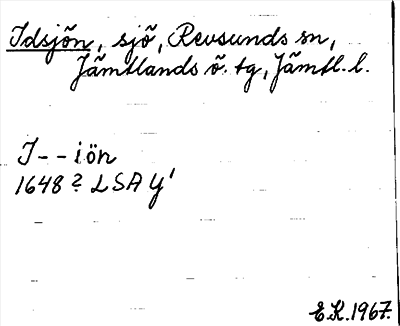 Idsjön, sjö, Revsunds sn,
Jämtlands ö. tg, Jämtl. l.
I - - iön
1648? LSA Y'
E.K. 1967.